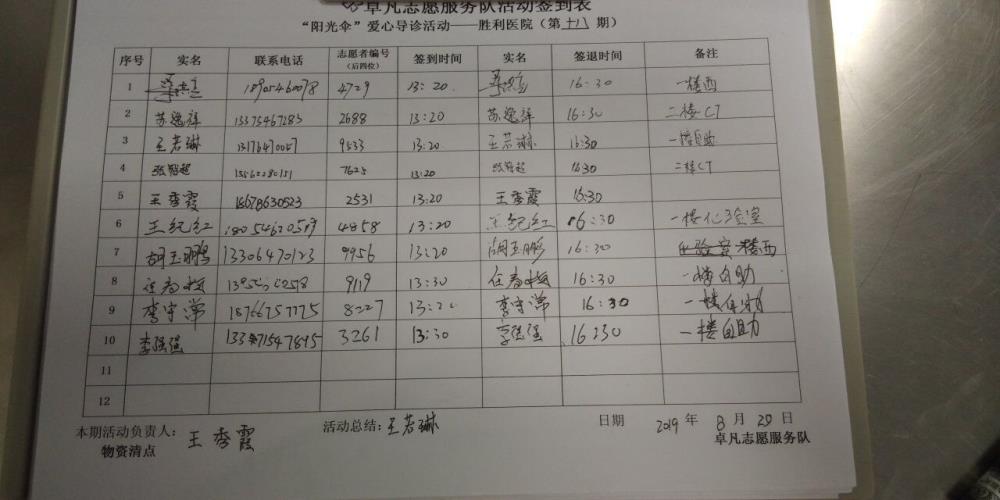 卓凡志愿服务队活动签到表
“阳光伞”爱心导诊活动——胜利医院（第十八期）
序号 实名 联系电话 志愿者编号（后四位） 签到时间 实名 签退时间 备注
1 18905460078 4729 13:20 16:30 一楼西
2 苏逸祥 13375467283 2688 13:20 苏逸祥 16:30 二楼CT
3 王若琳 9533 13:20 王若琳 16:30 一楼自助
4 7625 13:20 16:30 二楼CT
5 王秀霞 18678630523 2531 13:20 王秀霞 16:30
6 王纪红 18054670519 4858 13:20 王纪红 16:30 一楼化验室
7 胡玉鹏 13306470123 9956 13:20 胡玉鹏 16:30 楼西
8 任春梅 9119 13:30 任春梅 16:30 一楼自助
9 李守常 18766757775 8027 李守常 16:30 一楼自助
10 李强强 3261 13:30 李强强 16:30 一楼自助
11
12
本期活动负责人：王秀霞 活动总结：王若琳 日期 2019年8月20日
物资清点 卓凡志愿服务队